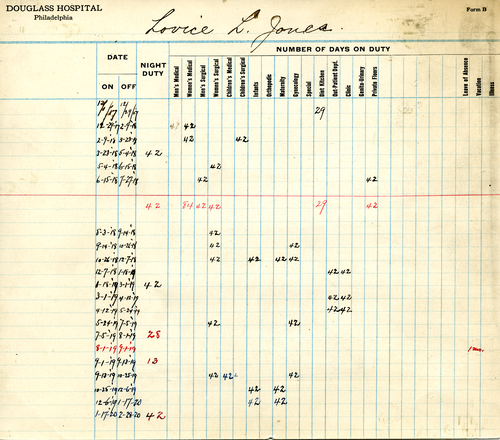 DOUGLASS HOSPITAL
Philadelphia
Form B
Lovice L. Jones.
NUMBER OF DAYS ON DUTY
DATE
NIGHT DUTY
ON OFF
Men's Medical Women's Medical Men's Surgical Women's Surgical Children's Medical Children's Surgical Infants Orthopedic Maternity Gynecology Special Diet Kitchen Out-Patient Dept. Clinic Genito-Urinary Private Floors Leave of Absence Vacation Illness
29
12-29-17 2-9-18 42
2-9-18 3-23-18 42 42
3-23-18 5-4-18 42
5-4-18 6-15-18 42
6-15-18 7-27-18 42 42
42 84 42 42 29 42
8-3-18 9-14-18 42
9-14-18 10-26-18 42 42
10-26-18 12-7-18 42 42 42 42
12-7-18 1-18-19 42 42
1-18-19 3-1-19 42
3-1-19 4-12-19 42 42
4-12-19 5-24-19 42 42
5-24-19 7-5-19 42 42
7-5-19 8-1-19 28
8-1-19 9-1-19 1 mo.
9-1-19 9-13-19 13
9-13-19 10-25-19 42 42 42
10-25-19 12-6-19 42 42
12-6-19 1-17-20 42 42
1-17-20 2-28-20 42